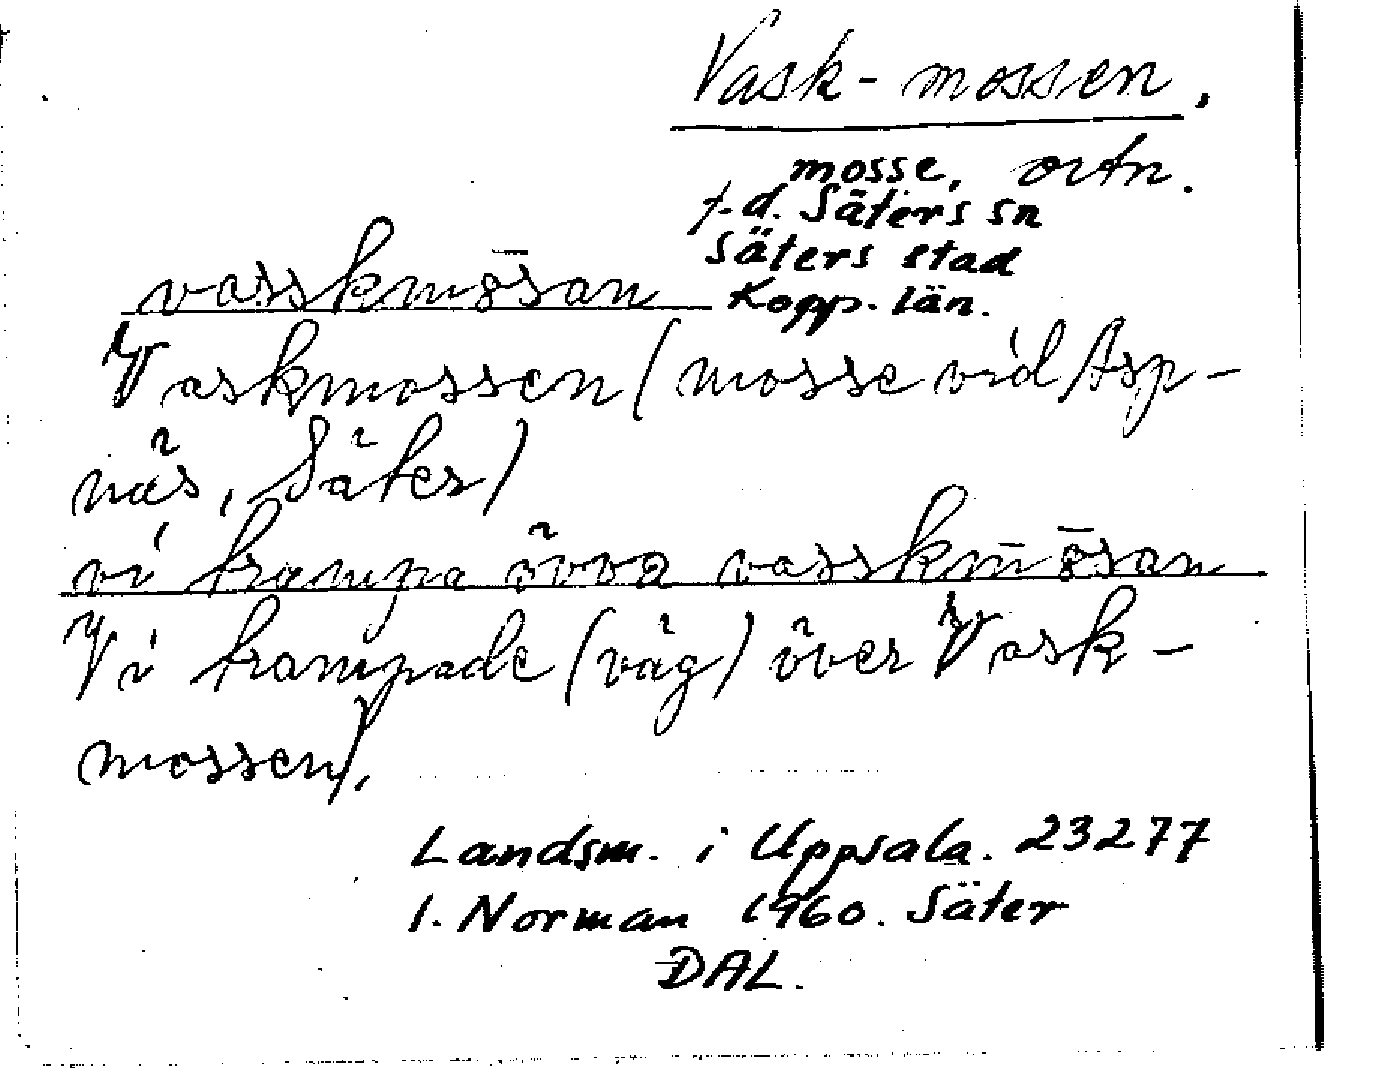 Vask-mossen.
mosse, ortn.
f.d. Säters sn
Säters stad
Kopp. län.
vasskmōsan
Vaskmossen (mosse vid Asp-
näs, Säter)
vi trampa övva vasskmōsan
Vi trampade (väg) över Vask-
mossen).
Landsm. i Uppsala. 23277
I. Norman 1960. Säter
DAL.